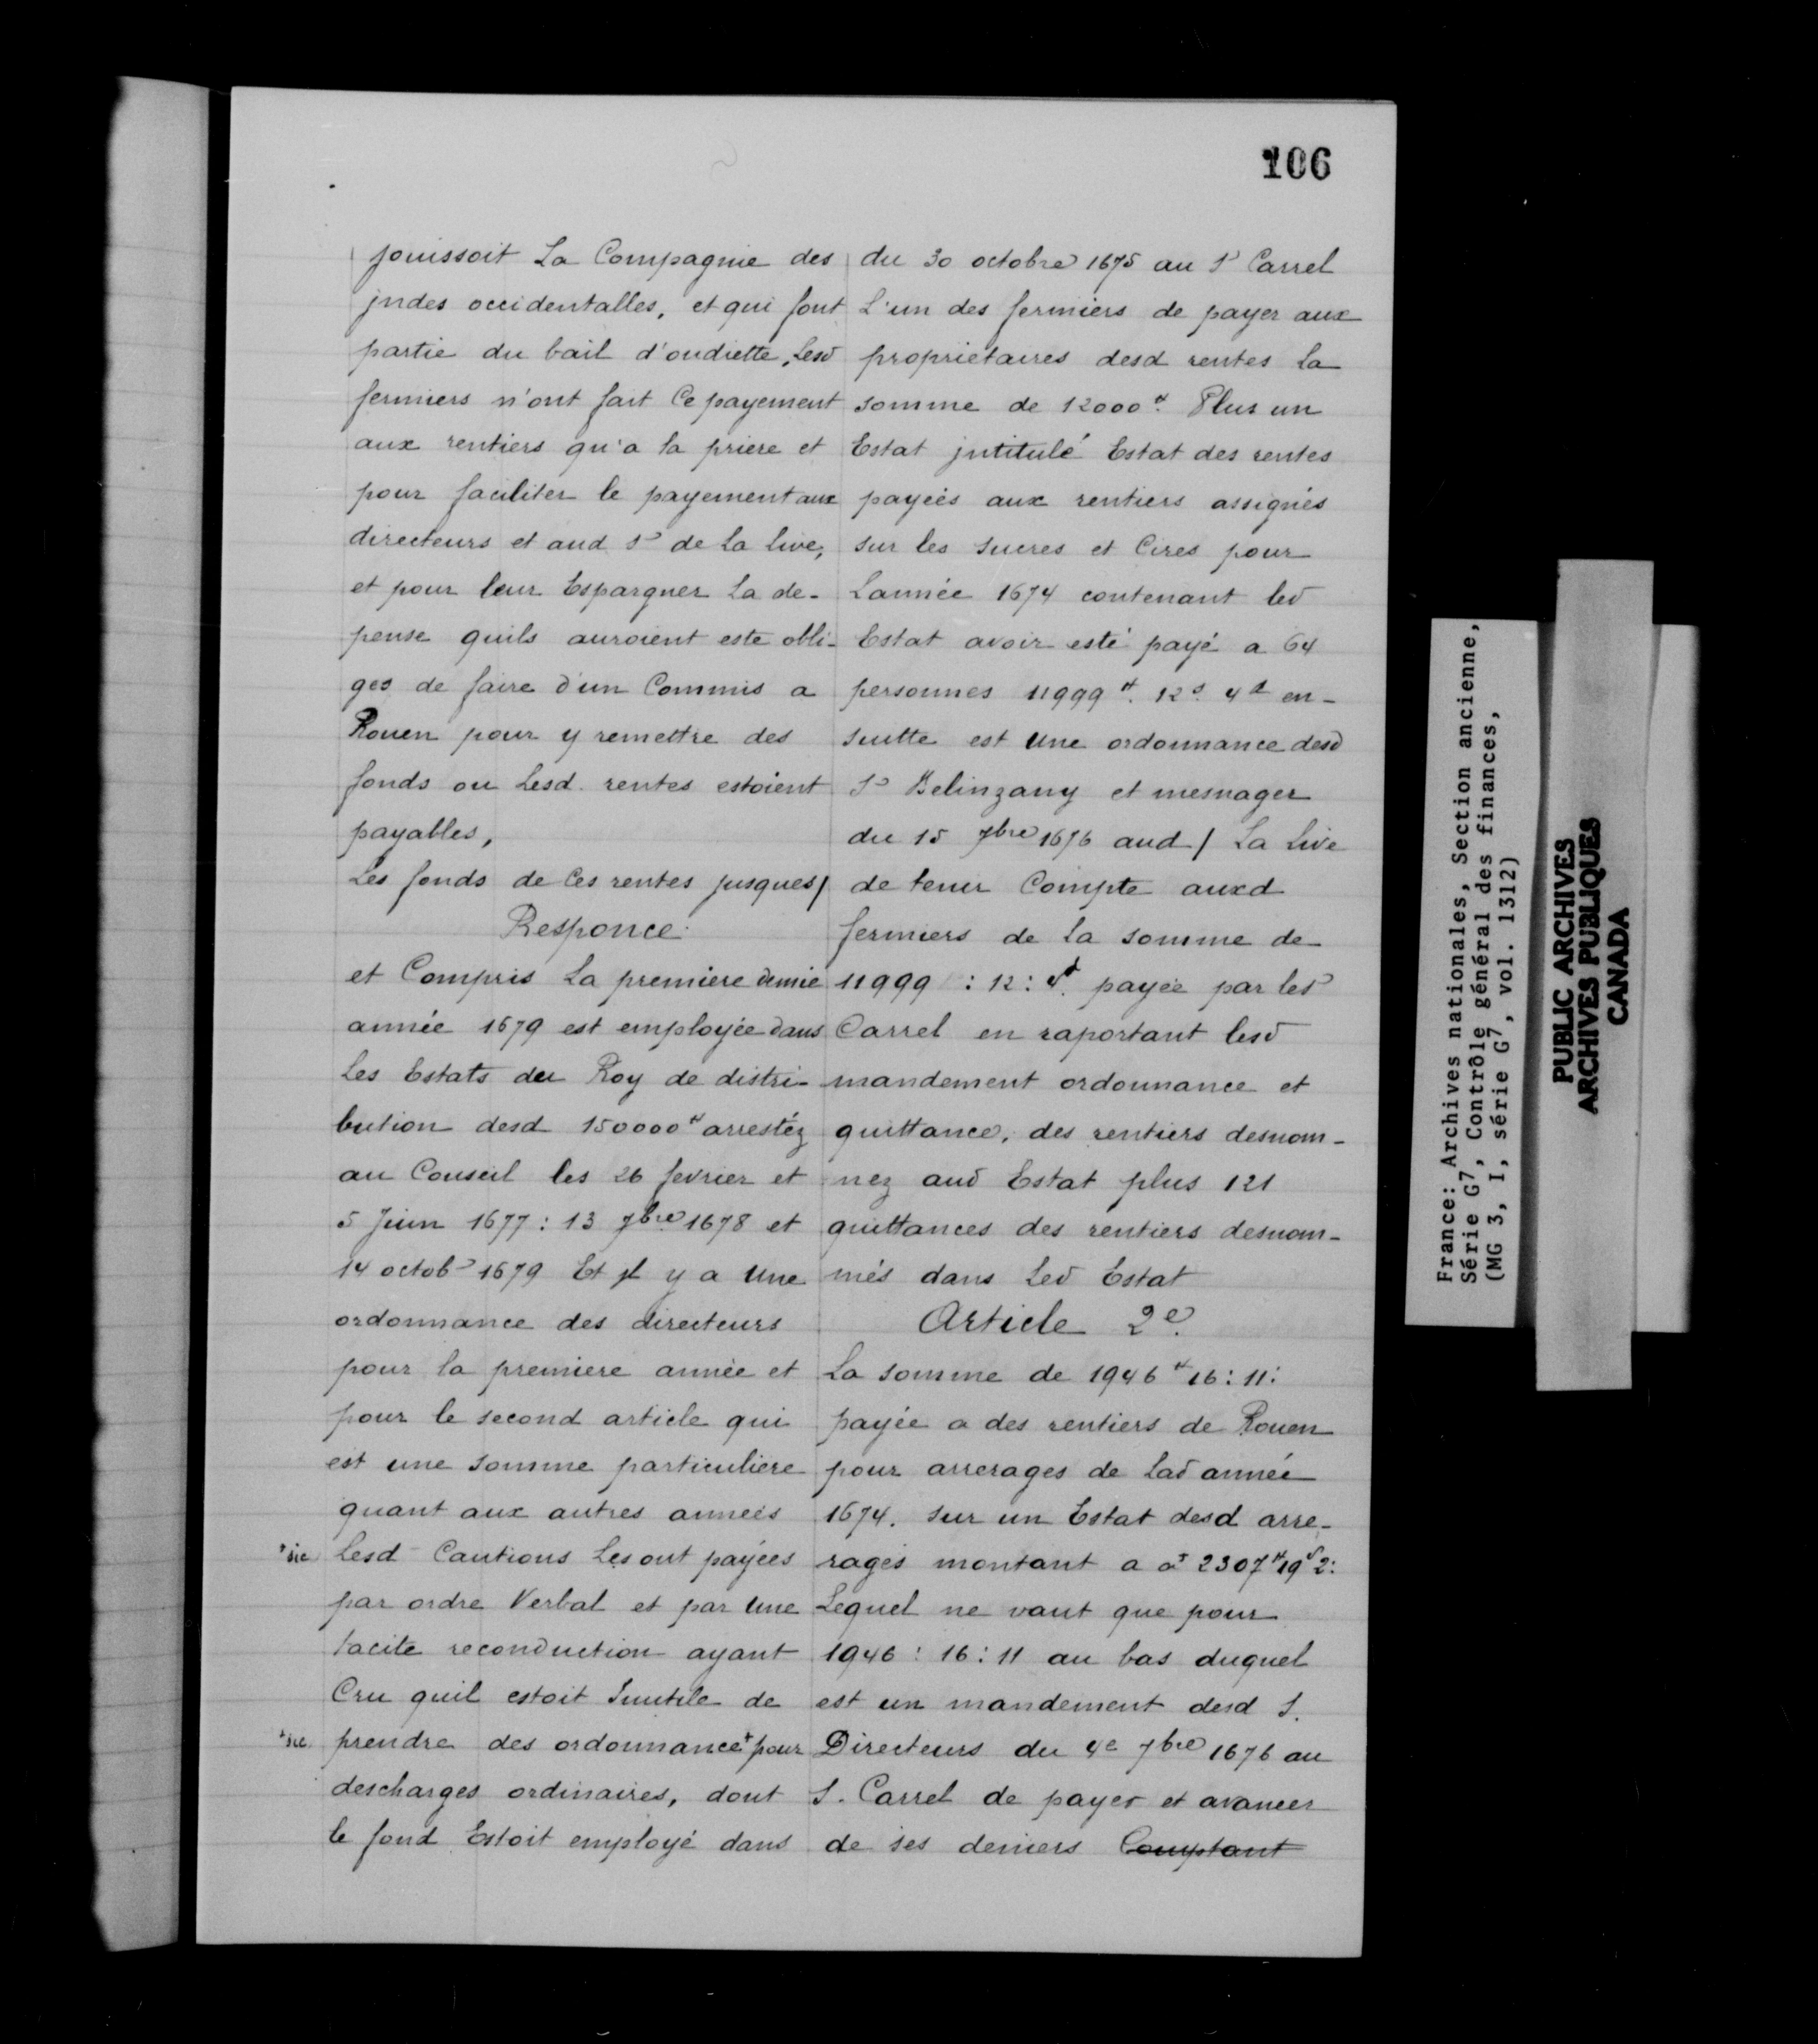 106
jouissoit La Compagnie des
jndes occidentalles, et qui font
partie du bail d'oudiette, Lesd
fermiers n'ont fait Ce payement
aux rentiers qu'a la priere et
pour faciliter le payement aux
directeurs et aud Sr de la live,
et pour leur Espargner La de-
pense quils auroient este obli-
ges de faire d'un Commis a
Rouen pour y remettre des
fonds ou Lesd. rentes estoient
payables,
Les fonds de Ces rentes jusques/
Responce.
et Compris La premiere demie
année 1679 est employée dans
Les Estats du Roy de distri-
bution desd 150000tt arrestéz
au Conseil les 26 fevrier et
5 Juin 1677 : 13 7bre 1678 et
14 octobr 1679 Et jl y a une
ordonnance des directeurs
pour la premiere année et
pour le second article qui
est une somme particuliere
quant aux autres années
+sic Lesd Cautions Les ont payées
par ordre Verbal et par une
tacite reconduction ayant
Cru quil estoit Inutile de
+sic. prendre des ordonnance+ pour
descharges ordinaires, dont
le fond Estoit employé dans
du 30 octobre 1675 au Sr Carrel
L'un des fermiers de payer aux
proprietaires desd rentes la
somme de 12000tt. Plus un
Estat jntitulé Estat des rentes
payées aux rentiers assignés
sur les sucres et Cires pour
Lannée 1674 contenant led
Estat avoir esté payé a 64
personnes 11999tt. 12s. 4d en-
suitte est une ordonnance desd
Srs Belinzany et mesnager
du 15 7bre 1676 aud / La Live
de tenir Compte auxd
fermiers de la somme de
11999 : 12 : 4d. payée par led
Carrel en raportant lesd
mandement ordonnance et
quittance, des rentiers desnom-
nez aud Estat plus 121
quittances des rentiers desnom-
més dans Led Estat
Article 2e.
La somme de 1946tt 16 : 11 :
payée a des rentiers de Rouen
pour arrerages de Lad année
1674. sur un Estat desd arre-
rages montant a a+ 2307tt 19s 2 :
Lequel ne vaut que pour
1946 : 16 : 11 au bas duquel
est un mandement desd S.
Directeurs du 4e 7bre 1676 au
S. Carrel de payer et avancer
de ses deniers Comptant
France: Archives nationales, Section ancienne,
Série G7, Contrôle général des finances,
(MG 3, I, série G7, vol. 1312)
PUBLIC ARCHIVES
ARCHIVES PUBLIQUES
CANADA